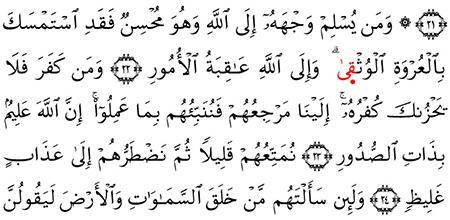 ﴿٢١﴾ ۞ وَمَن يُسْلِمْ وَجْهَهُۥٓ إِلَى ٱللَّهِ وَهُوَ مُحْسِنٌ فَقَدِ ٱسْتَمْسَكَ
بِٱلْعُرْوَةِ ٱلْوُثْقىٰ ۗ وَإِلَى ٱللَّهِ عَـٰقِبَةُ ٱلْأُمُورِ ﴿٢٢﴾ وَمَن كَفَرَ فَلَا
يَحْزُنكَ كُفْرُهُۥٓ ۚ إِلَيْنَا مَرْجِعُهُمْ فَنُنَبِّئُهُم بِمَا عَمِلُوٓا۟ ۚ إِنَّ ٱللَّهَ عَلِيمٌۢ
بِذَاتِ ٱلصُّدُورِ ﴿٢٣﴾ نُمَتِّعُهُمْ قَلِيلًا ثُمَّ نَضْطَرُّهُمْ إِلَىٰ عَذَابٍ
غَلِيظٍ ﴿٢٤﴾ وَلَئِن سَأَلْتَهُم مَّنْ خَلَقَ ٱلسَّمَـٰوَٰتِ وَٱلْأَرْضَ لَيَقُولُنَّ